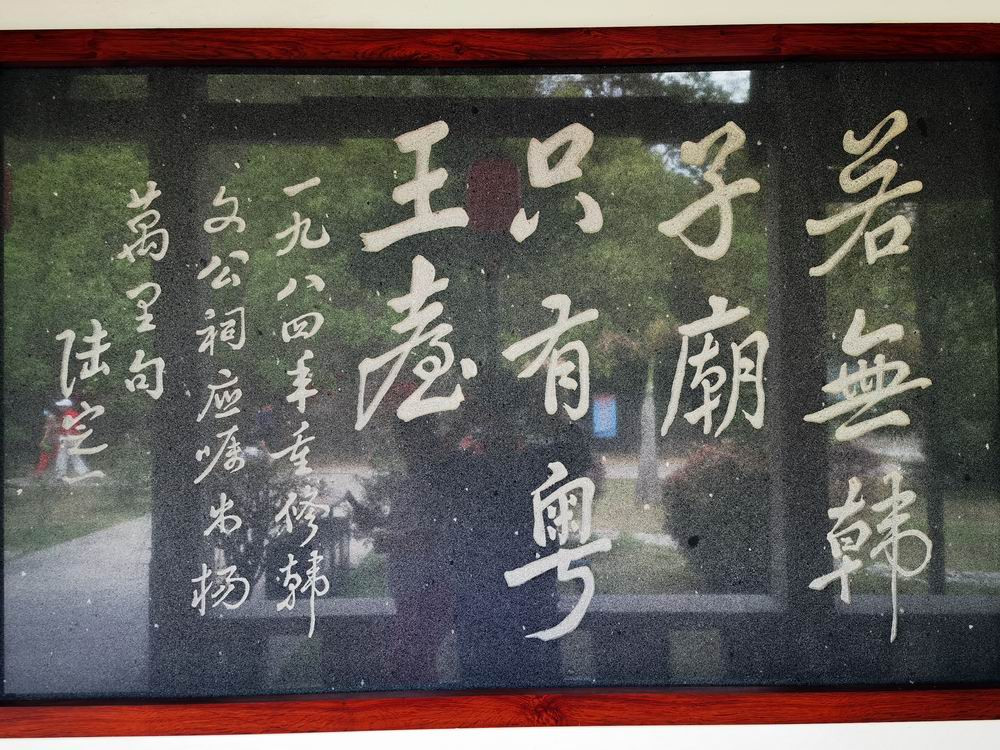 若無韓
子廟
只有粤
王臺
一九八四年重修韓
文公祠应嘱书杨
萬里句
陆定一